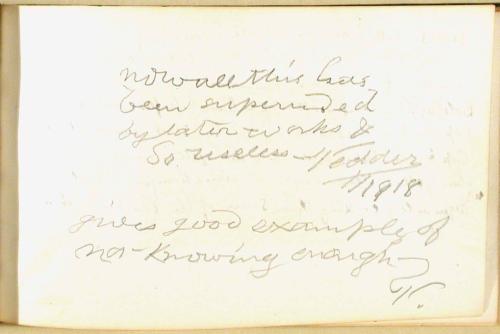 now all this has
been superseded
by later works &
so useless - Vedder
1918
gives good example of
not - knowing enough -
V.